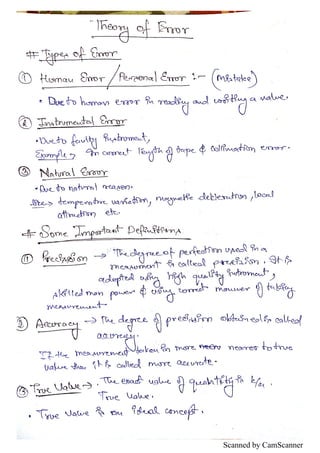 Theory of Error
# Types of Error
① Human Error / Personal Error :- (Mistake)
• Due to human error in reading and writing a value.
② Instrumental Error
• Due to faulty instrument,
Example → In correct length of tape & collimation error.
③ Natural Error
• Due to natural reason.
like → temperature variation, magnetic declination, local
attraction etc.
# Some Important Definitions
① Precission → The degree of perfection used in a
measurement is called precision. It is
adopted using high quality instrument,
skilled man power & using correct manner of taking
measurement
② Accuracy → The degree of precision obtained is called
accuracy.
If the measurement taken is more nearer to true
value then it is called more accurate.
③ True Value → The exact value of quantity is k/a
True Value.
• True value is an ideal concept.
Scanned by CamScanner